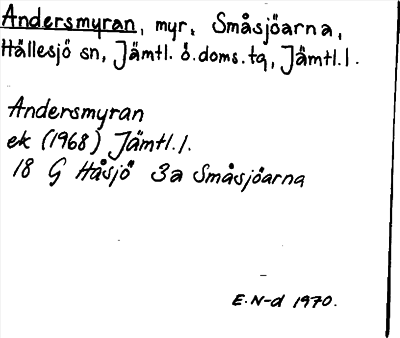 Andersmyran, myr, Småsjöarna,
Hällesjö sn, Jämtl. ö. doms. tg, Jämtl. l.
Andersmyran
ek (1968) Jämtl. l.
18 G Håsjö 3a Småsjöarna
E. N-d 1970.